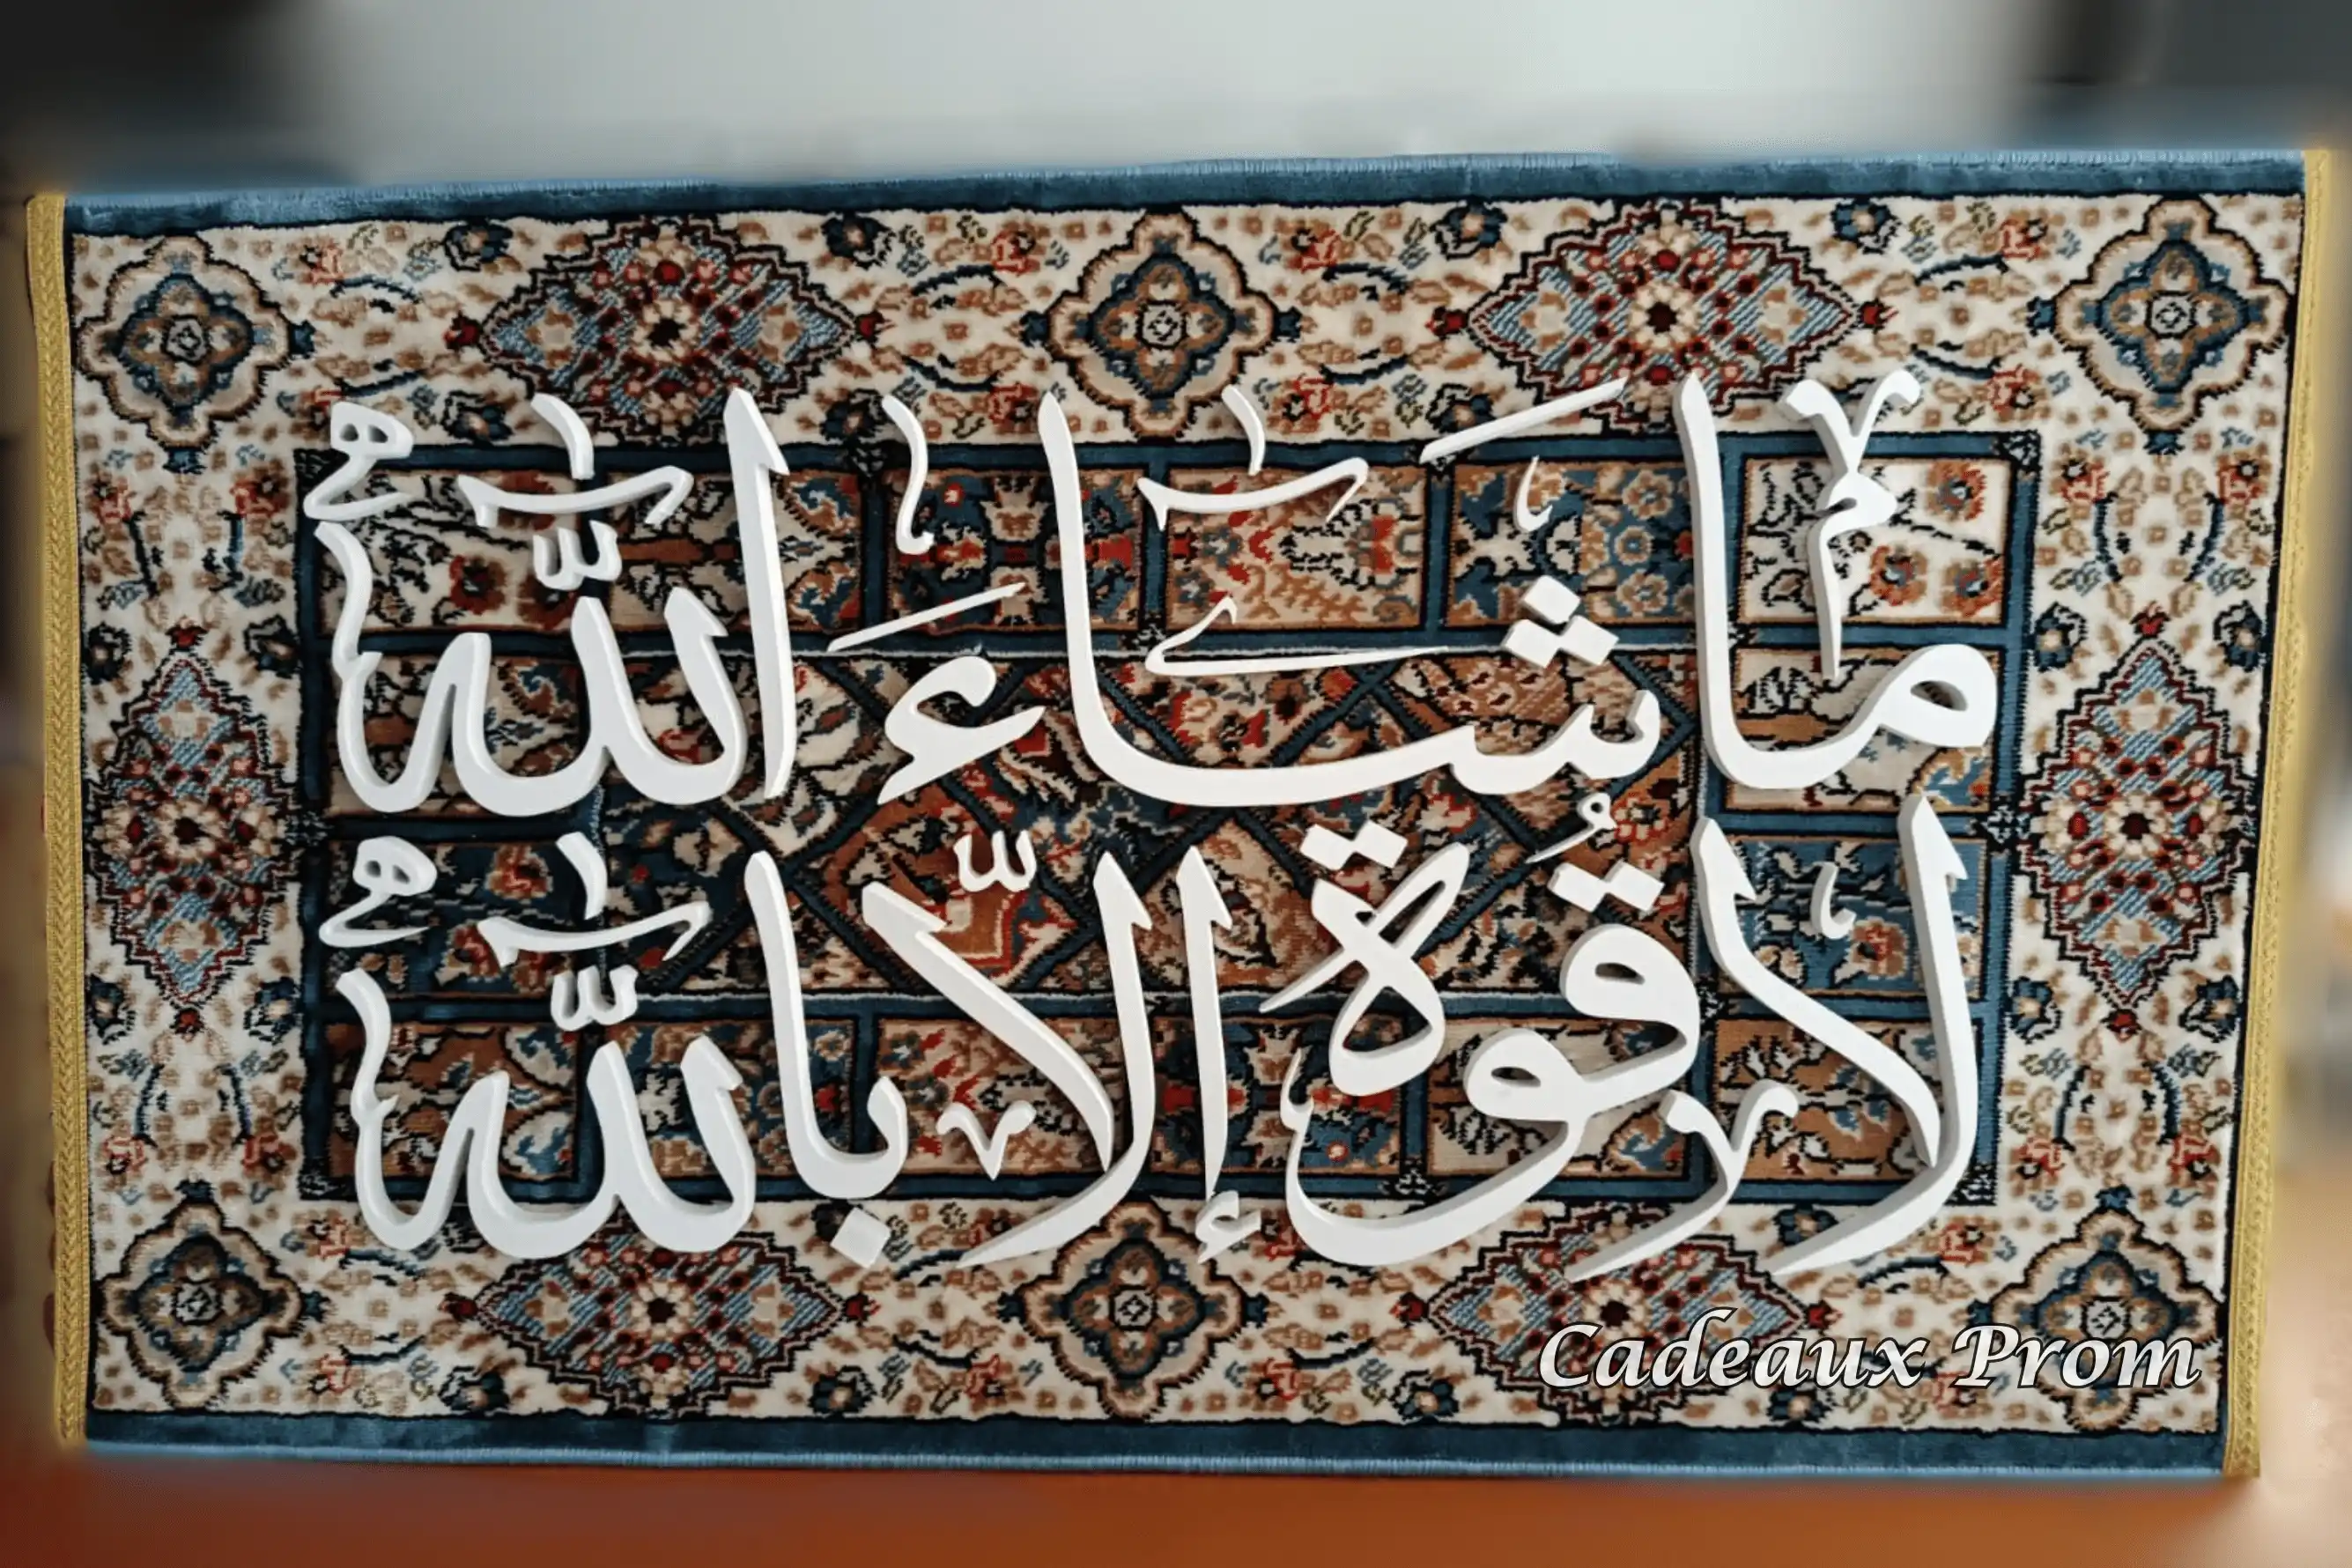 ما شاء الله
لا قوة إلا بالله
Cadeaux Prom